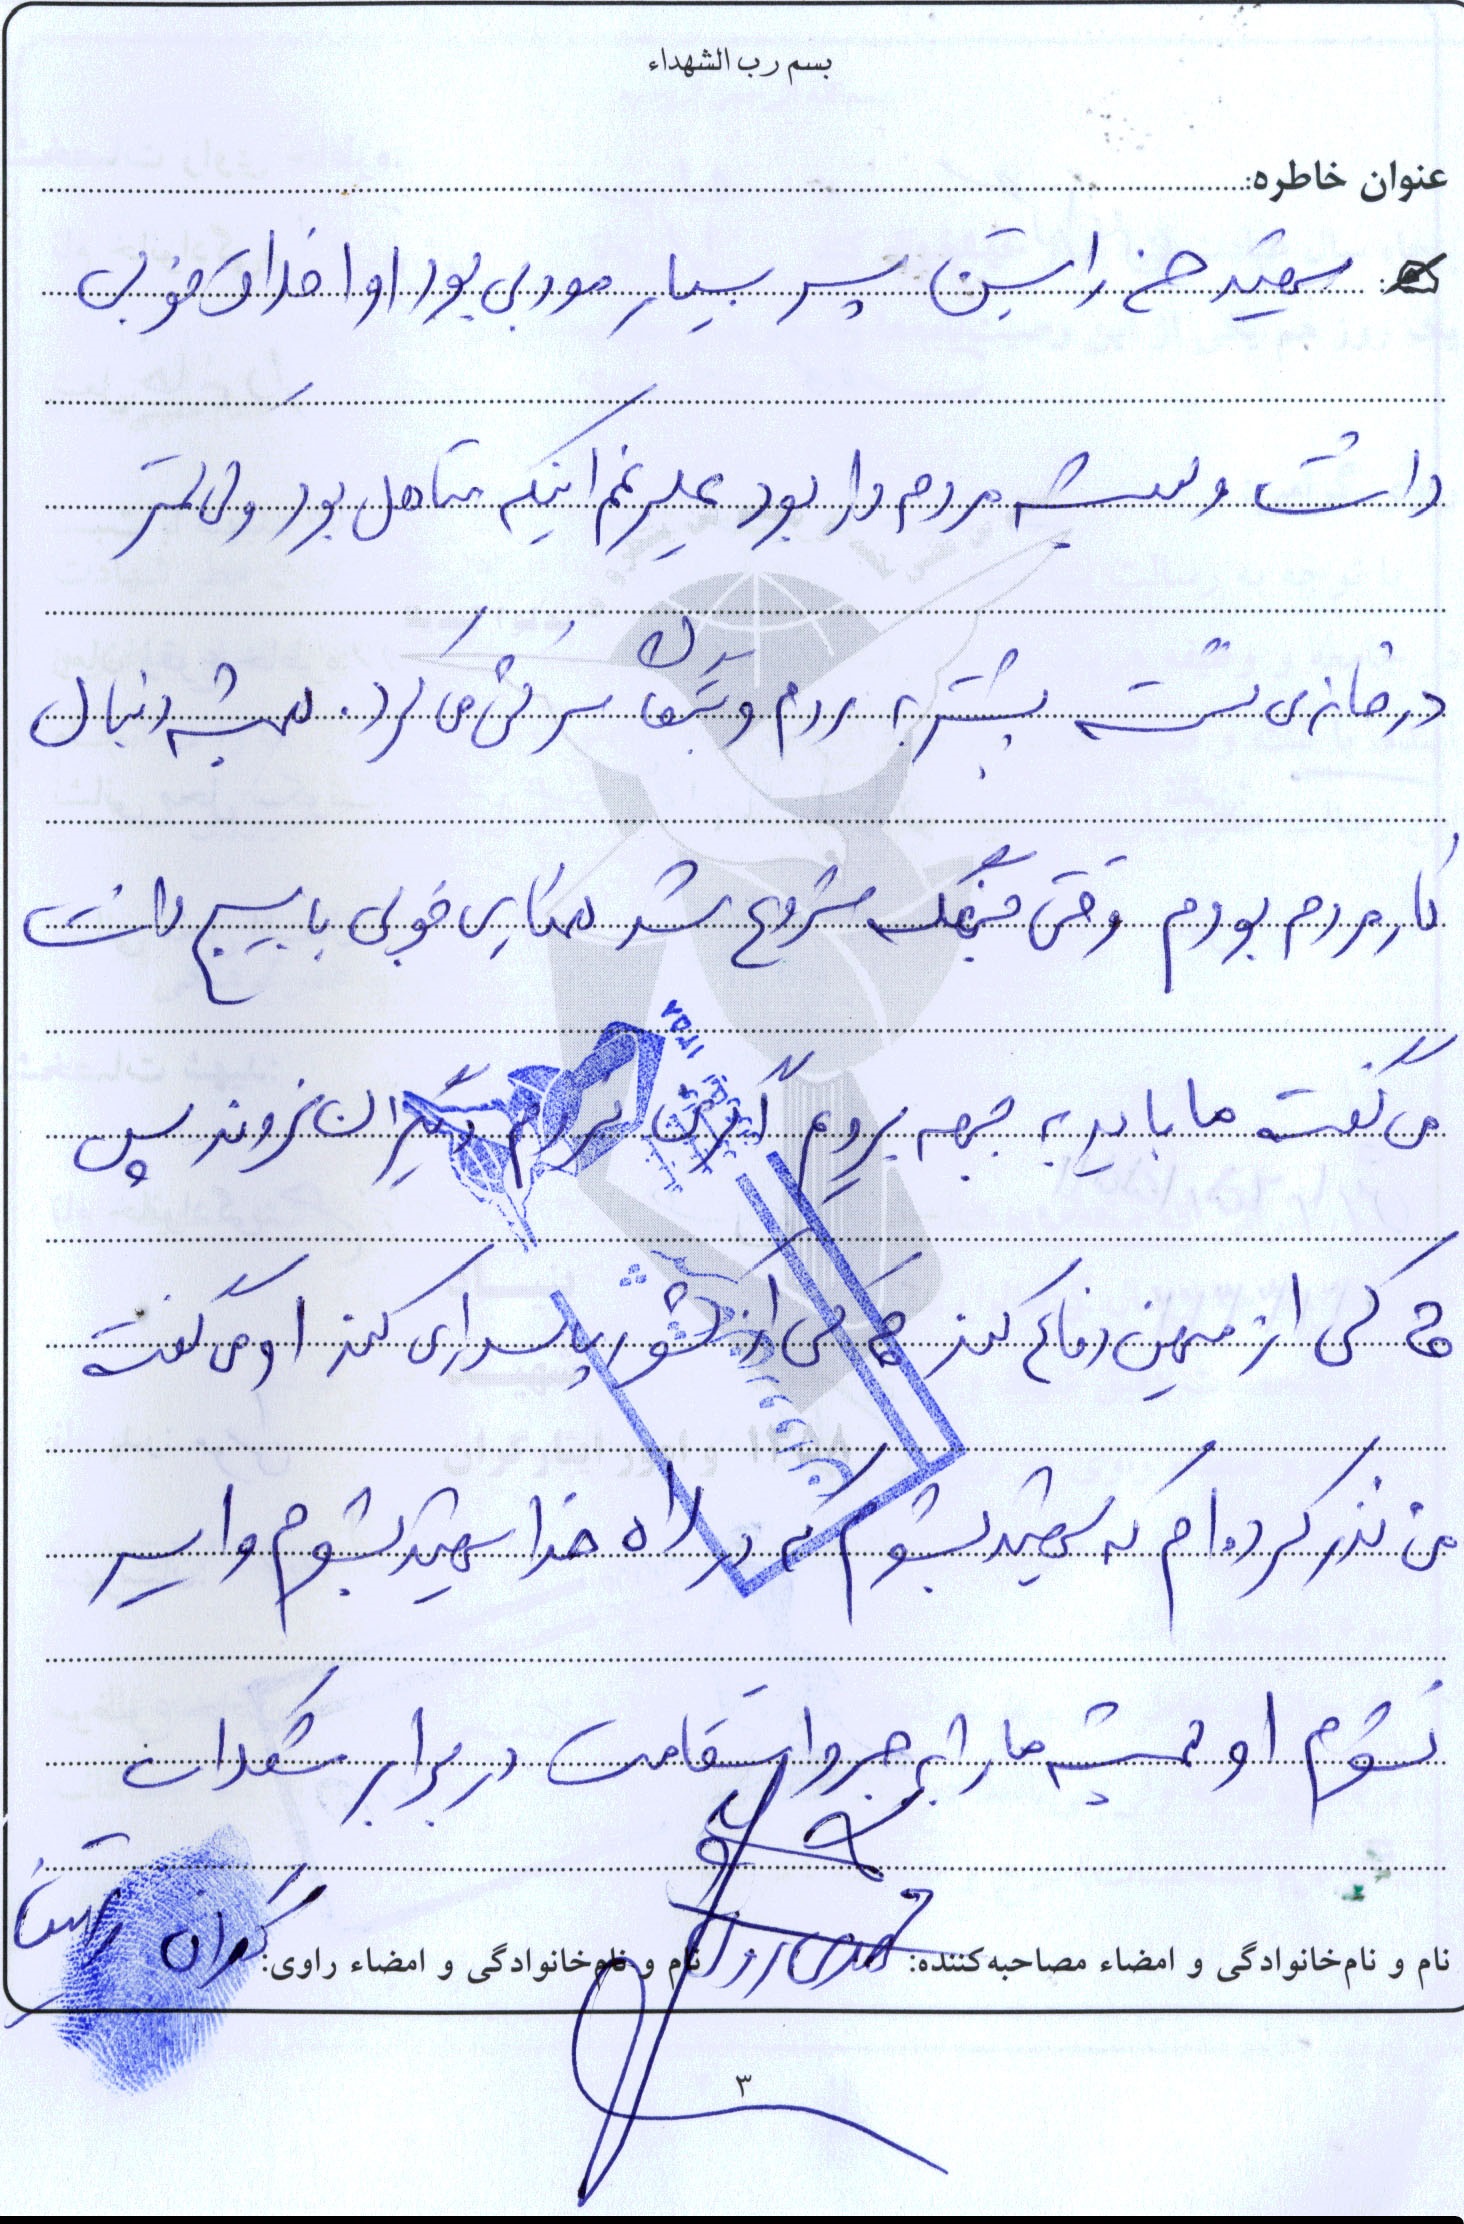 بسم رب الشهداء
عنوان خاطره:
شهید حسن راستین پسر بسیار مودبی بود او اخلاق خوبی
داشت و همیشه مردم دار بود علیرغم اینکه متاهل بود ولی کمتر
در خانه ی نشسته بیشتر به مردم و بزرگ سرکشی می کرد. همیشه دنبال
کار مردم بودم وقتی جنگ شروع شد همکاری خوبی با بسیج داشت
می گفت ما باید به جبهه برویم اگر من نروم دیگران نروند پس
چه کسی از میهن دفاع کند چه کسی از کشور پاسداری کند او می گفت
من نذر کرده ام که شهید بشوم که در راه خدا شهید بشوم و اسیر
نشوم او همیشه ما را به صبر و استقامت در برابر مشکلات
نام و نام‌خانوادگی و امضاء مصاحبه‌کننده:
نام و نام‌خانوادگی و امضاء راوی:
۱۳۵۸
۳